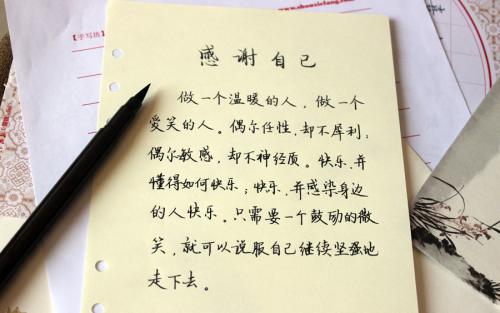 感谢自己
做一个温暖的人，做一个
爱笑的人。偶尔任性，却不犀利；
偶尔敏感，却不神经质。快乐，并
懂得如何快乐；快乐，并感染身边
的人快乐。只需要一个鼓励的微
笑，就可以说服自己继续坚强地
走下去。